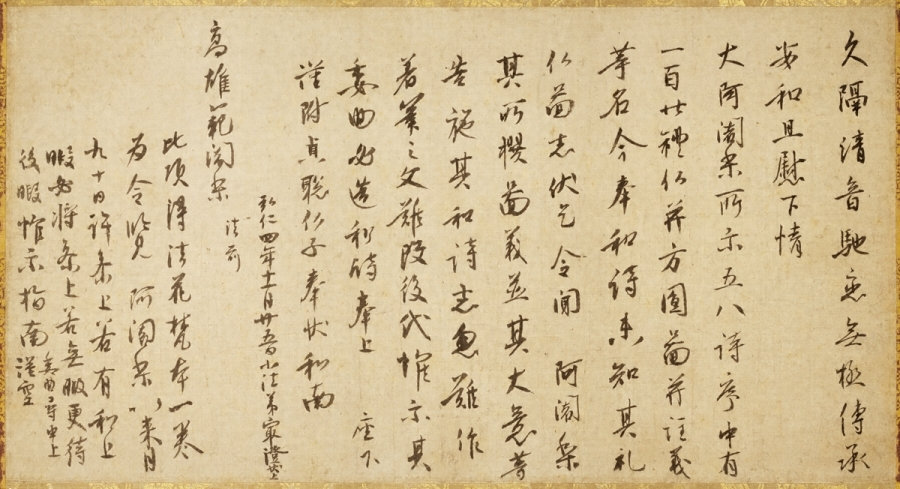 久隔清音馳恋無極傳承
安和且慰下情
大阿闍梨所示五八詩序中有
一百廿禮仏并方圓圖并注義
等名今奉和詩未知其礼
仏圖志伏乞令聞 阿闍梨
其所撰圖義並其大意等
告施其和詩者忽難作
著筆之文難改後代惟示其
委曲必造和詩奉上 座下
謹附貞聡仏子奉状和南
弘仁四年十一月廿五日小法弟最澄状上
高雄範闍梨
法前
此頃得法花梵本一巻
為令覧阿闍梨以来月
九十日許参上若有和上
暇必将参上若無暇更待
後暇惟示指南委曲尋申上
謹空